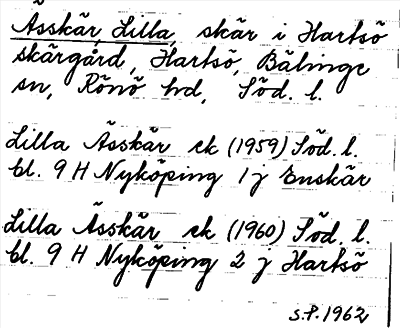 Ässkär, Lilla, skär i Hartsö
skärgård, Hartsö, Bälinge
sn, Rönö hd, Söd. l.
Lilla Ässkär ek (1959) Söd. l.
bl. 9 H Nyköping 1 j Enskär
Lilla Ässkär ek (1960) Söd. l.
bl. 9 H Nyköping 2 j Hartsö
S.P. 1962